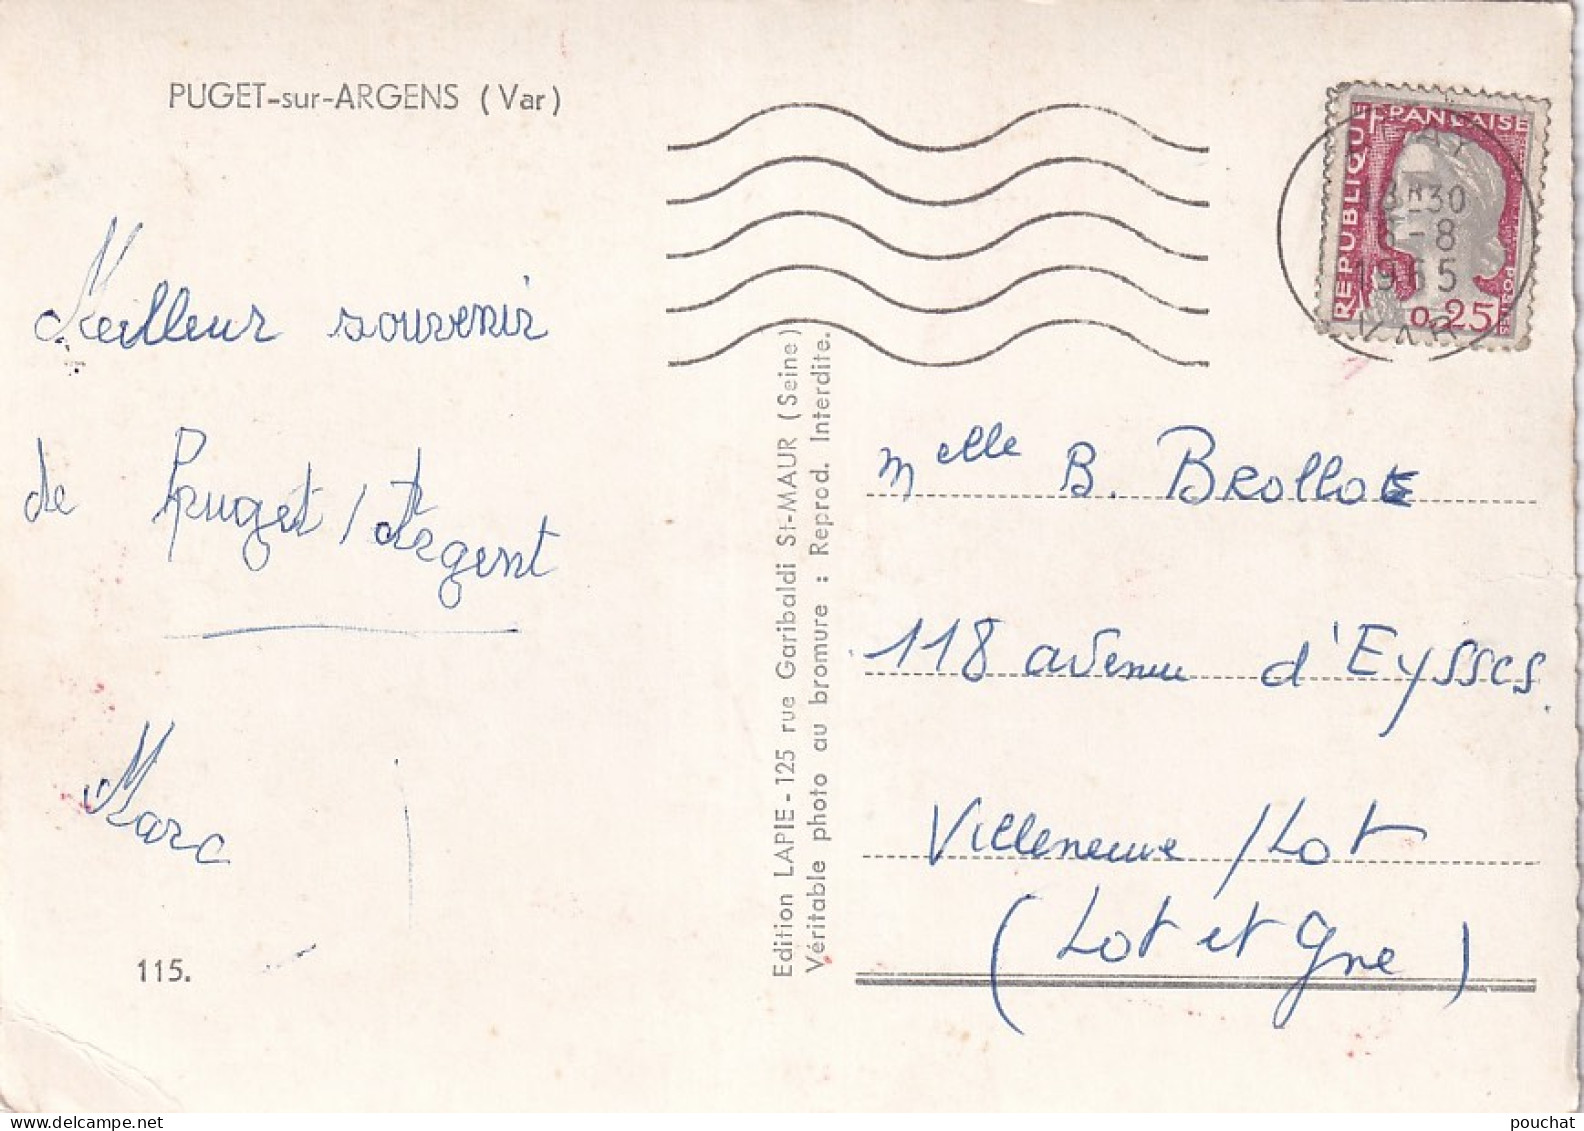 PUGET-sur-ARGENS (Var)
Meilleur souvenir
de Puget / Argent
Marc
115.
Edition LAPIE - 125 rue Garibaldi St-MAUR (Seine)
Véritable photo au bromure : Reprod. Interdite.
REPUBLIQUE FRANÇAISE
0,25
18H30
-8
1965
VAR
Melle B. Brollo
118 avenue d'Eysses.
Villeneuve /Lot
(Lot et Gne)
pouchat